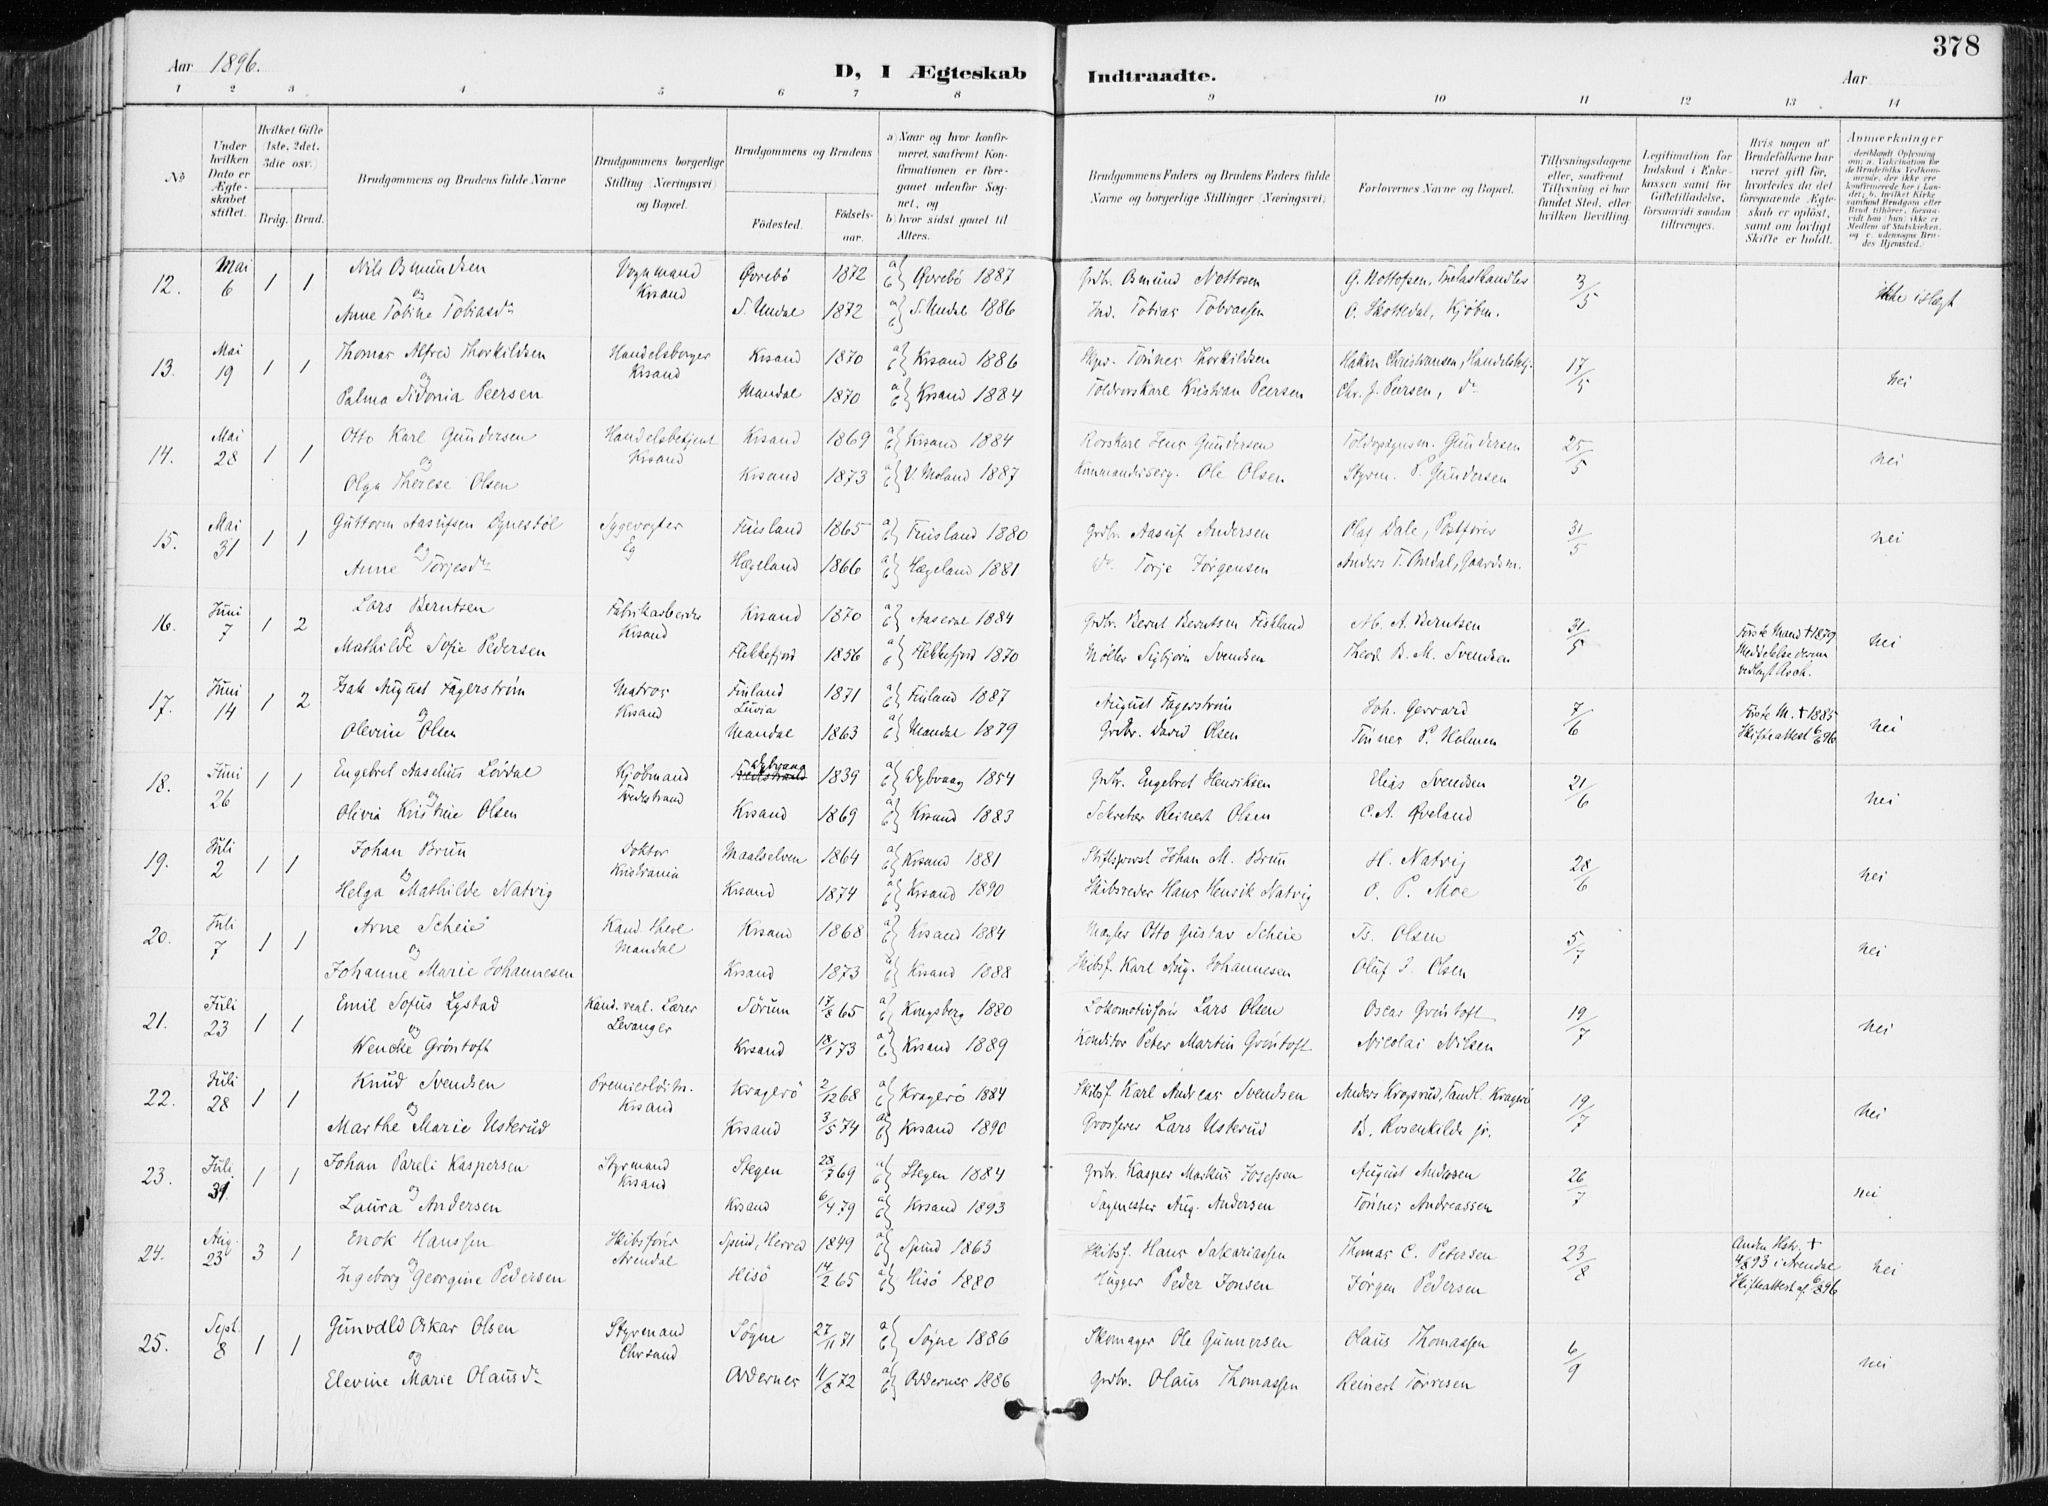 378
Aar 1896. D, I Ægteskab Indtraadte. Aar
1 2 3 4 5 6 7 8 9 10 11 12 13 14
No
Under hvilken Dato er Ægteskabet stiftet.
Hvilket Gifte (1ste, 2det, 3die osv.)
Brdg. Brud.
Brudgommens og Brudens fulde Navne
Brudgommens borgerlige Stilling (Næringsvei) og Bopæl.
Brudgommens og Brudens
Fødested. Fødselsaar.
a) Naar og hvor konfirmeret, saafremt Konfirmationen er foregaaet udenfor Sognet, og
b) hvor sidst gaaet til Alters.
Brudgommens Faders og Brudens Faders fulde Navne og borgerlige Stillinger (Næringsvei)
Forlovernes Navne og Bopæl.
Tillysningsdagene eller, saafremt Tillysning ei har fundet Sted, efter hvilken Bevilling.
Legitimation for Indskud i Enkekassen samt for Giftetilladelse, forsaavidt saadan tiltrænges.
Hvis nogen af Brudefolkene har været gift før, hvorledes da det foregaaende Ægteskab er opløst, samt om lovligt Skifte er holdt.
Anmærkninger
12. Mai 6 1 1 Nils Osmundsen Vognmand Øvrebø 1872 a) b) Øvrebø 1887 Grdbr. Osmund Nottosen 3/5 ikke i slægt
og Krsand
Anne Tobine Tobiasdr S. Undal 1872 a) b) S. Undal 1886 Ind. Tobias Tobiassen O. Skottedal, Kjøbm.
13. Mai 19 1 1 Thomas Alfred Thorkildsen Handelsborger Krsand 1870 a) b) Krsand 1886 Tønnes Thorkildsen Hakon Christiansen, Handelsbetj. 17/5 nei
og Krsand
Palma Sidonia Peersen Mandal 1870 a) b) Krsand 1884 Toldrorskarl Kristian Peersen Chr. J. Peersen, do
14. Mai 28 1 1 Otto Karl Gundersen Handelsbetjent Krsand 1869 a) b) Krsand 1884 Rorskarl Jens Gundersen Gundersen 25/5 nei
og Krsand
Olga Therese Olsen Krsand 1873 a) b) V. Moland 1887 Ole Olsen Styrm. P. Gundersen
15. Mai 31 1 1 Guttorm Aasulfsen Dynestøl Sygevogter Finsland 1865 a) b) Finsland 1880 Grdbr. Aasulf Andersen Olaf Dale, Postfører 31/5 nei
og Eg
Anne Torjesdr Hægeland 1866 a) b) Hægeland 1881 do Torje Jørgensen Anders T. Omdal, Gaardsm.
16. Juni 7 1 2 Lars Berntsen Fabrikarbeider Krsand 1870 a) b) Aaseral 1884 Grdbr. Bernt Berntsen Fiskland Ab. A. Berntsen 31/5 Første Mand + 1879 nei
og Krsand Meddelelse derom
Mathilde Sofie Pedersen Flekkefjord 1856 a) b) Flekkefjord 1870 Møller Sigbjørn Svendsen Theod. B. M. Svendsen
17. Juni 14 1 2 Isak August Fagerstrøm Matros Finland 1871 a) b) Finland 1887 August Fagerstrøm Joh. Gerrard 7/6 Første M. + 1885 nei
og Krsand Luvia Skifteattest 6/6 96
Olevine Olsen Mandal 1863 a) b) Mandal 1879 Grdbr. David Olsen Tønnes P. Holmen
18. Juni 26 1 1 Engebret Aaselius Løvdal Kjøbmand Dybvaag 1839 a) b) Dybvaag 1854 Grdbr. Engebret Henriksen Elias Svendsen 21/6 nei
og Tvedestrand
Olivia Kristine Olsen Krsand 1869 a) b) Krsand 1883 Sekretær Reinert Olsen C. A. Øveland
19. Juli 2 1 1 Johan Brun Doktor Maalselven 1864 a) b) Krsand 1881 Stiftsprovst Johan M. Brun H. Natvig 28/6 nei
og Kristiania
Helga Mathilde Natvig Krsand 1874 a) b) Krsand 1890 Skibsreder Hans Henrik Natvig O. P. Moe
20. Juli 7 1 1 Arne Scheie Kand. theol Krsand 1868 a) b) Krsand 1884 Mægler Otto Gustav Scheie Ts. Olsen 5/7 nei
og Mandal
Johanne Marie Johannesen Krsand 1873 a) b) Krsand 1888 Skibsf. Karl Aug. Johannesen Oluf I. Olsen
21. Juli 23 1 1 Emil Sofus Lystad Kand. real. Lærer Sørum 17/8 65 a) b) Kongsberg 1880 Lokomotivfører Lars Olsen Oscar Grøntoft 19/7 nei
og Levanger
Wencke Grøntoft Krsand 18/1 73 a) b) Krsand 1889 Konditor Peter Martin Grøntoft Nicolai Nilsen
22. Juli 28 1 1 Knud Svendsen Premierløitn. Kragerø 2/12 68 a) b) Kragerø 1884 Skibsf. Karl Andreas Svendsen Anders Krogsrud, Tandl. Kragerø 19/7 nei
og Krsand
Marthe Marie Usterud Krsand 3/5 74 a) b) Krsand 1890 Grosserer Lars Usterud B. Rosenkilde jr.
23. Juli 31. 1 1 Johan Pareli Kaspersen Styrmand Stegen 28/7 69 a) b) Stegen 1884 Grdbr. Kasper Markus Josefsen August Andersen 26/7 nei
og Krsand
Laura Andersen Krsand 6/4 79 a) b) Krsand 1893 Sagmester Aug. Andersen Tønnes Andreassen
24. Aug. 23 3 1 Enok Hanssen Skibsfører Spind, Herred 1849 a) b) Spind 1863 Skibsf. Hans Sakariassen Thomas C. Petersen 23/8 Anden Hstr. + nei
og Arendal 4/8 93 i Arendal
Ingeborg Georgine Pedersen Hisø 14/2 65 a) b) Hisø 1880 Hugger Peder Jonsen Jørgen Pedersen Skifteattest af 6/8 96
25. Sept. 8 1 1 Gunvald Oskar Olsen Styrmand Søgne 27/11 71 a) b) Søgne 1886 Skomager Ole Gunnersen Olaus Thomassen 6/9 nei
og Chrsand
Elevine Marie Olausdr Oddernes 11/8 72 a) b) Oddernes 1886 Grdbr. Olaus Thomassen Reinert Torresen